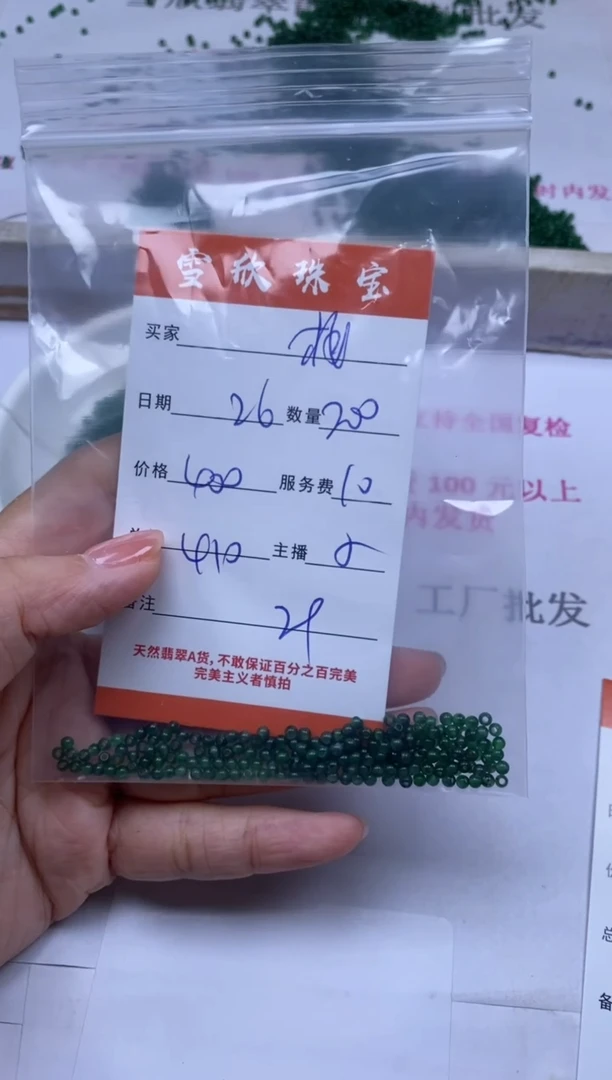 批发
时内发
雪欣珠宝
买家
日期 26 数量 200
价格 400 服务费 10
410 主播
注
天然翡翠A货，不敢保证百分之百完美
完美主义者慎拍
支持全国复检
100元以上
内发货
工厂批发
总
备